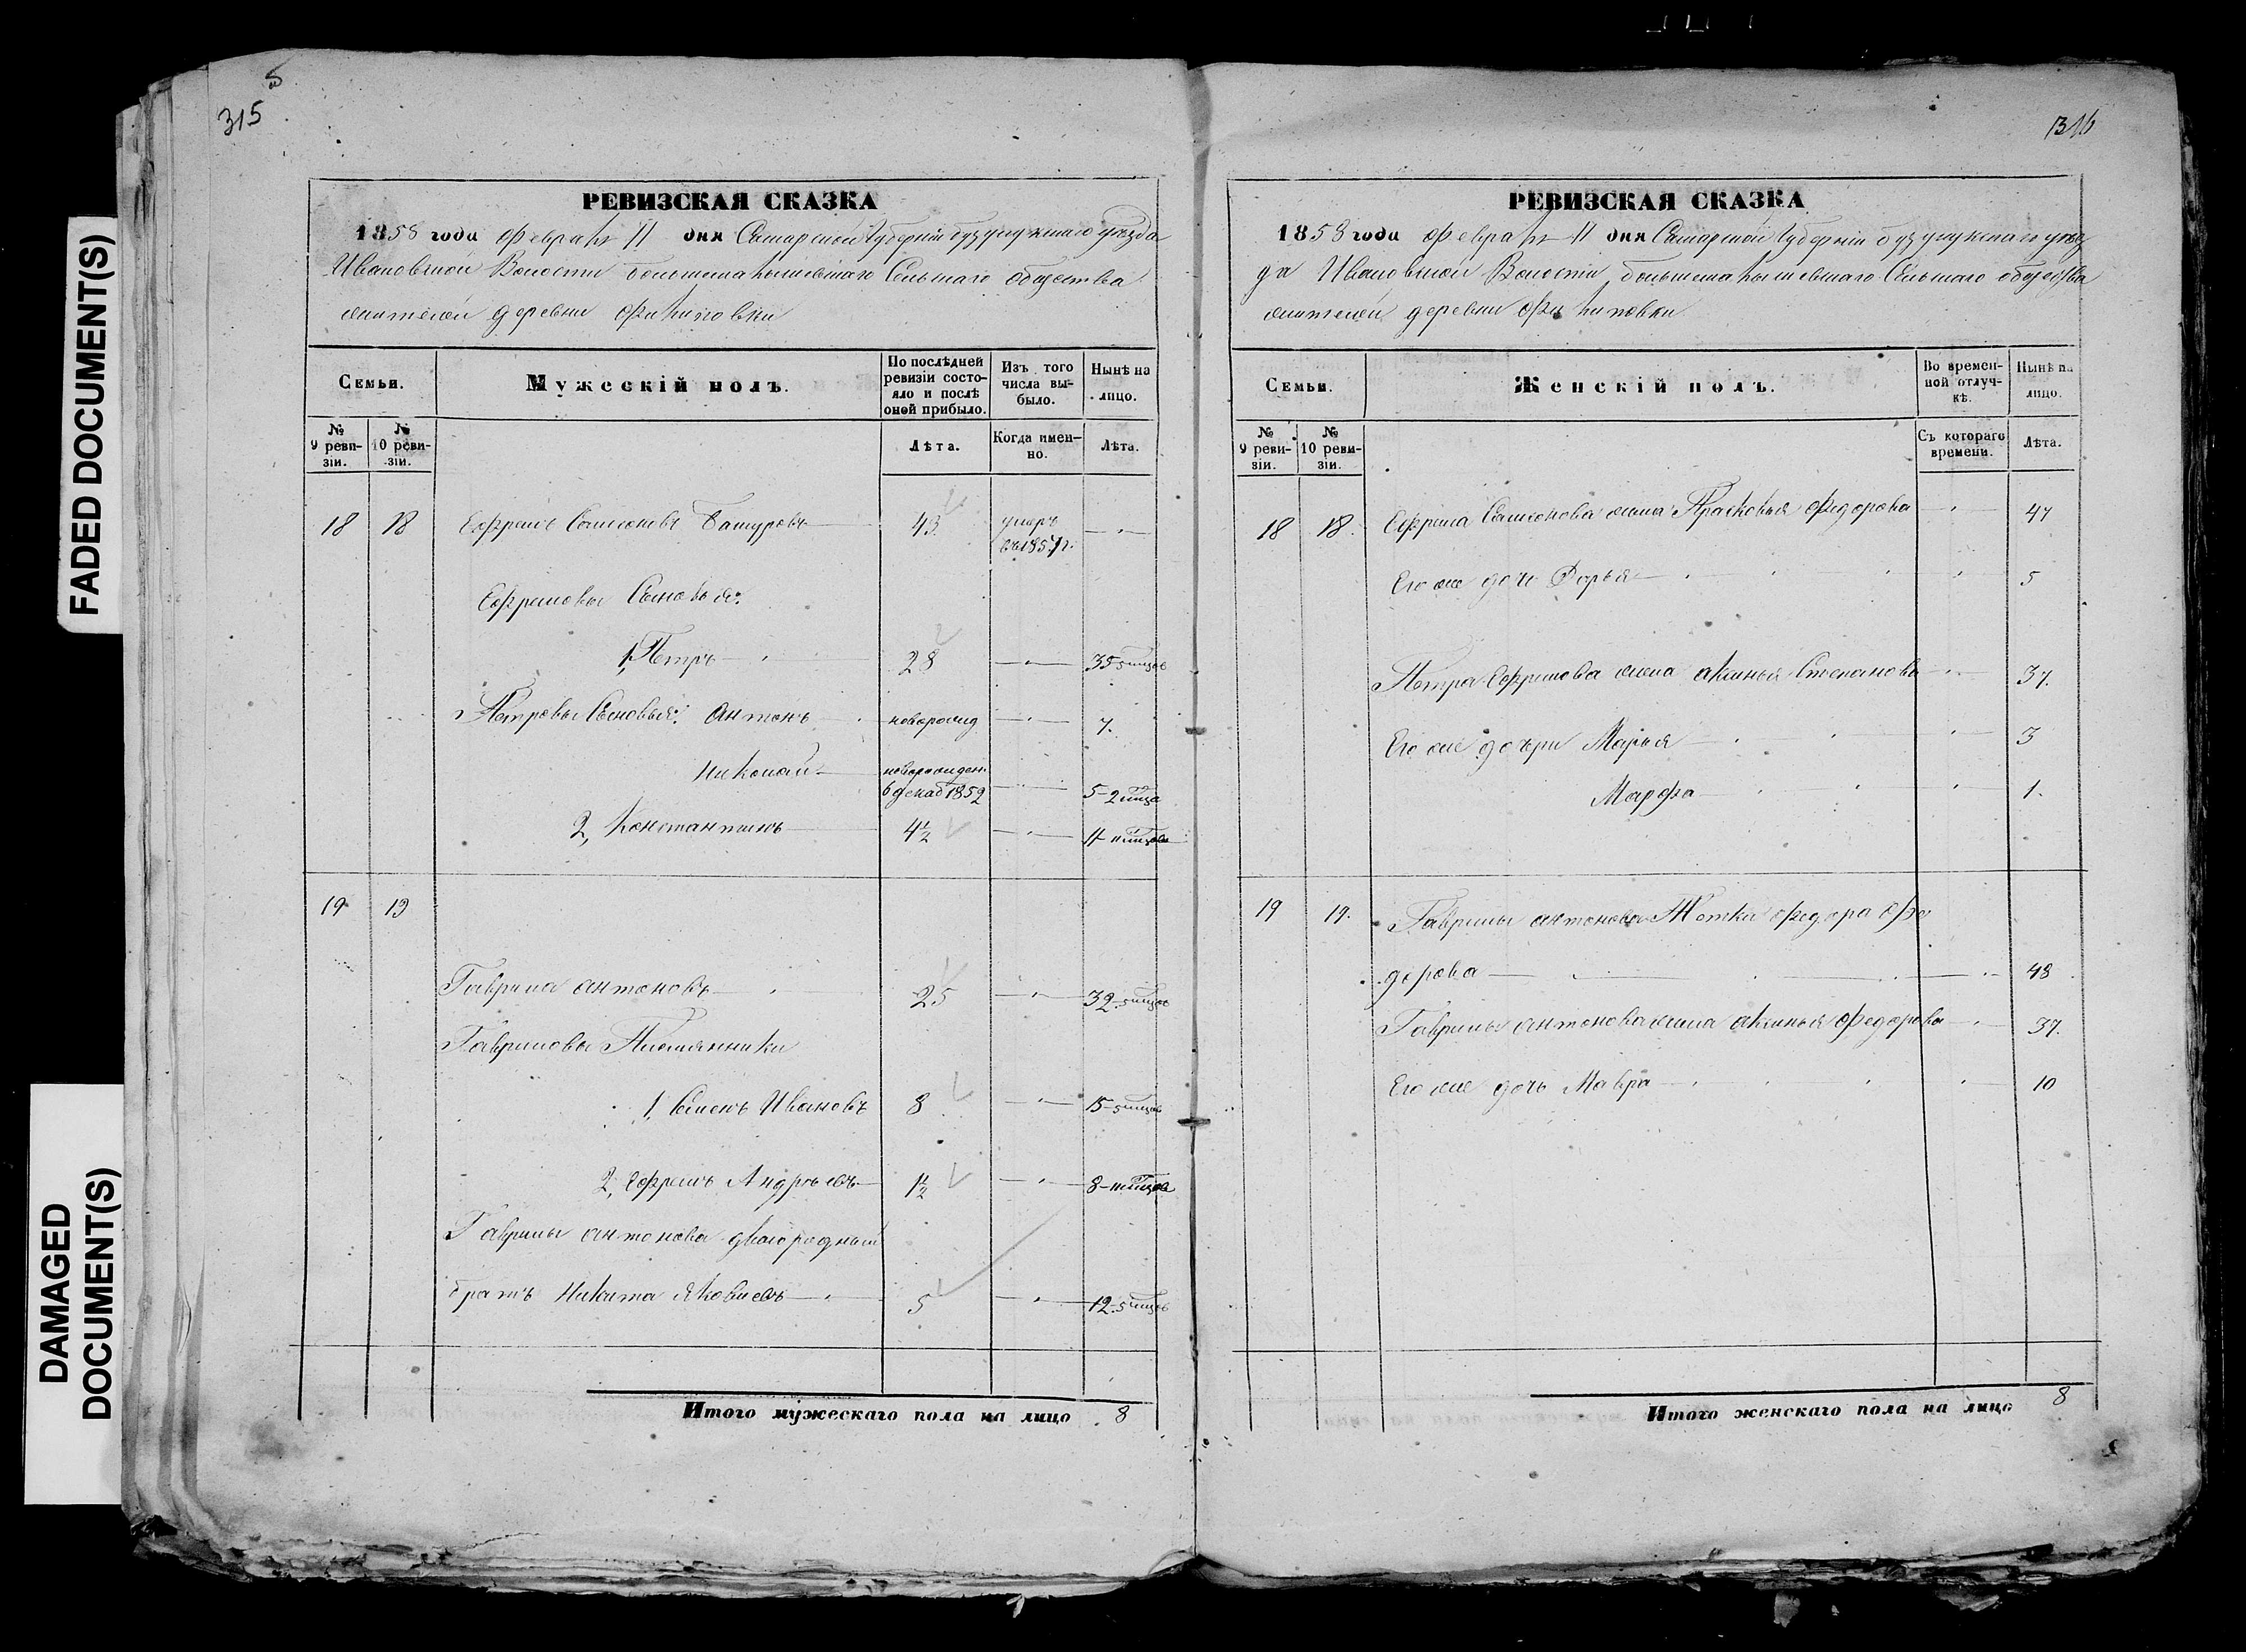 FADED DOCUMENT(S)
DAMAGED
DOCUMENT(S)
5
315
РЕВИЗСКАЯ СКАЗКА
1858 года Февраля 11 дня Самарской Губерніи Бузулукскаго уѣзда
Ивановской Волости Сельскаго общества
жителей деревни Филиповки
Семьи.
Мужескій полъ.
По послѣдней ревизіи состояло и послѣ оной прибыло.
Изъ того числа выбыло.
Нынѣ на лицо.
№ 9 ревизіи.
№ 10 ревизіи.
Лѣта.
Когда именно.
Лѣта.
18 18 Ефремъ Самсоновъ 43 умеръ въ 1857 г.
Ефремовы Сыновья:
1, Петръ 28 35 5 мцовъ
Петровы Сыновья: Антонъ новорожд 7.
Николай новорожден. 6 декаб 1852 5-2 мца
2, Константинъ 4½ 11 мцовъ
19 19
Гаврила Антоновъ 25 32-5 мцов
Гавриловы Племянники
1, Семенъ Ивановъ 8 15-5 мцов
2, Ефремъ Андреевъ 1½ 8-мцов
Гаврилы Антонова двоюродный
братъ Никита Яковлевъ 5 12-5 мцов
Итого мужескаго пола на лицо 8
316
РЕВИЗСКАЯ СКАЗКА
1858 года Февраля 11 дня Самарской Губерніи Бузулукскаго уѣз
да Ивановской Волости Сельскаго общества
жителей деревни Филиповки
Семьи.
Женскій полъ.
Во временной отлучкѣ.
Нынѣ на лицо.
№ 9 ревизіи.
№ 10 ревизіи.
Съ котораго времени.
Лѣта.
18 18. Ефрема Самсонова жена Прасковья Федорова 47
Его же дочь Дарья 5
Петра Ефремова жена Аксинья Степанова 37.
Его же дочери Марья 3
Марфа 1.
19 19. Гаврилы Антонова Тетка Федора Фе
дорова 48
Гаврилы Антонова жена Аксинья Федорова 37.
Его же дочь Мавра 10
Итого женскаго пола на лицо 8